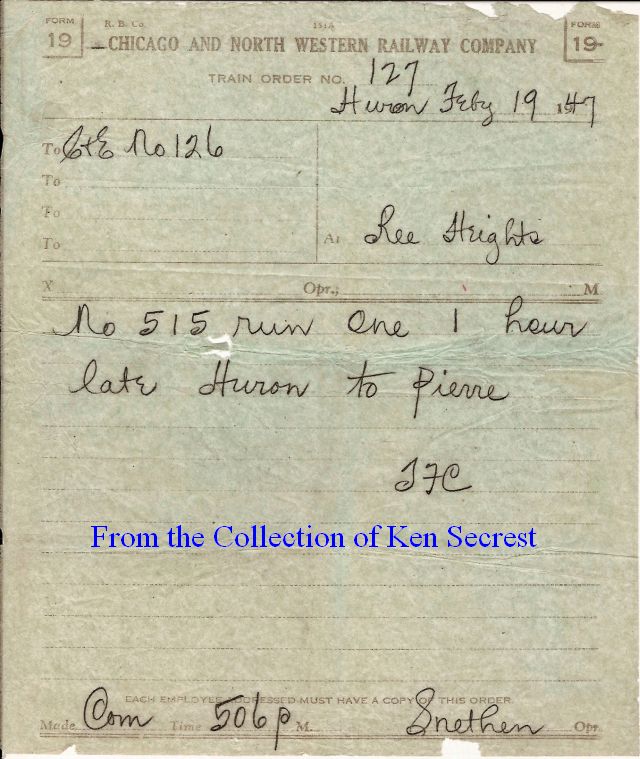 FORM 19 R. B. Co. 151A FORM 19
CHICAGO AND NORTH WESTERN RAILWAY COMPANY
TRAIN ORDER NO. 127
Huron Feby 19 1947
To C&E No 126
To
To
To At Ree Heights
X Opr.; M
No 515 run one 1 hour
late Huron to Pierre
JFC
From the Collection of Ken Secrest
EACH EMPLOYE ADDRESSED MUST HAVE A COPY OF THIS ORDER
Made Com Time 506p M. Snethen Opr.